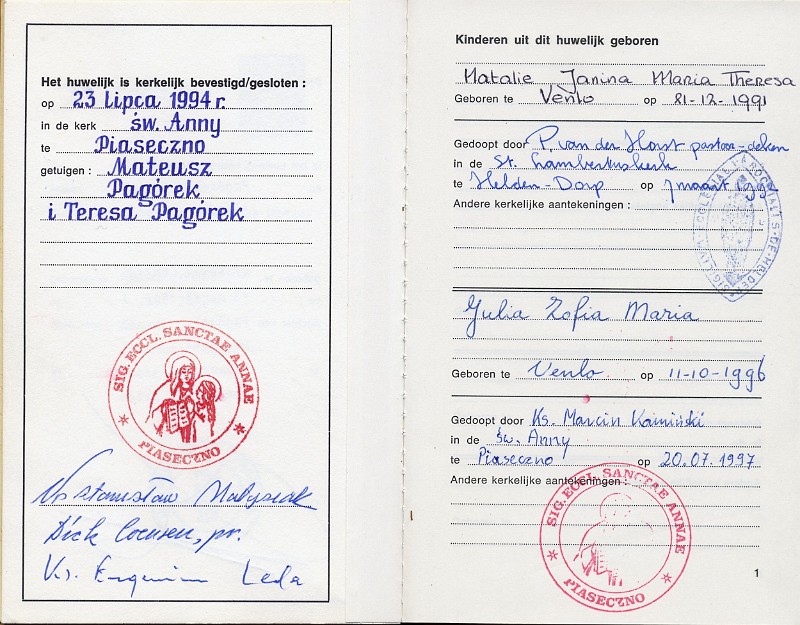 Het huwelijk is kerkelijk bevestigd/gesloten :
op 23 lipca 1994 r.
in de kerk św. Anny
te Piaseczno
getuigen : Mateusz
Pagórek
i Teresa Pagórek
SIG. ECCL. SANCTAE ANNAE
PIASECZNO
Ks Stanisław Małysiak
Dick , pr.
Ks. Leda
Kinderen uit dit huwelijk geboren
Natalie Janina Maria Theresa
Geboren te Venlo op 21-12-1991
Gedoopt door P. van der Horst pastoor-deken
in de St. Lambertuskerk
te Helden-Dorp op 7 maart 1992
Andere kerkelijke aantekeningen :
Julia Zofia Maria
Geboren te Venlo op 11-10-1996
Gedoopt door Ks. Marcin Kamiński
in de św. Anny
te Piaseczno op 20.07.1997
Andere kerkelijke aantekeningen :
SIG. ECCL. SANCTAE ANNAE
PIASECZNO
1